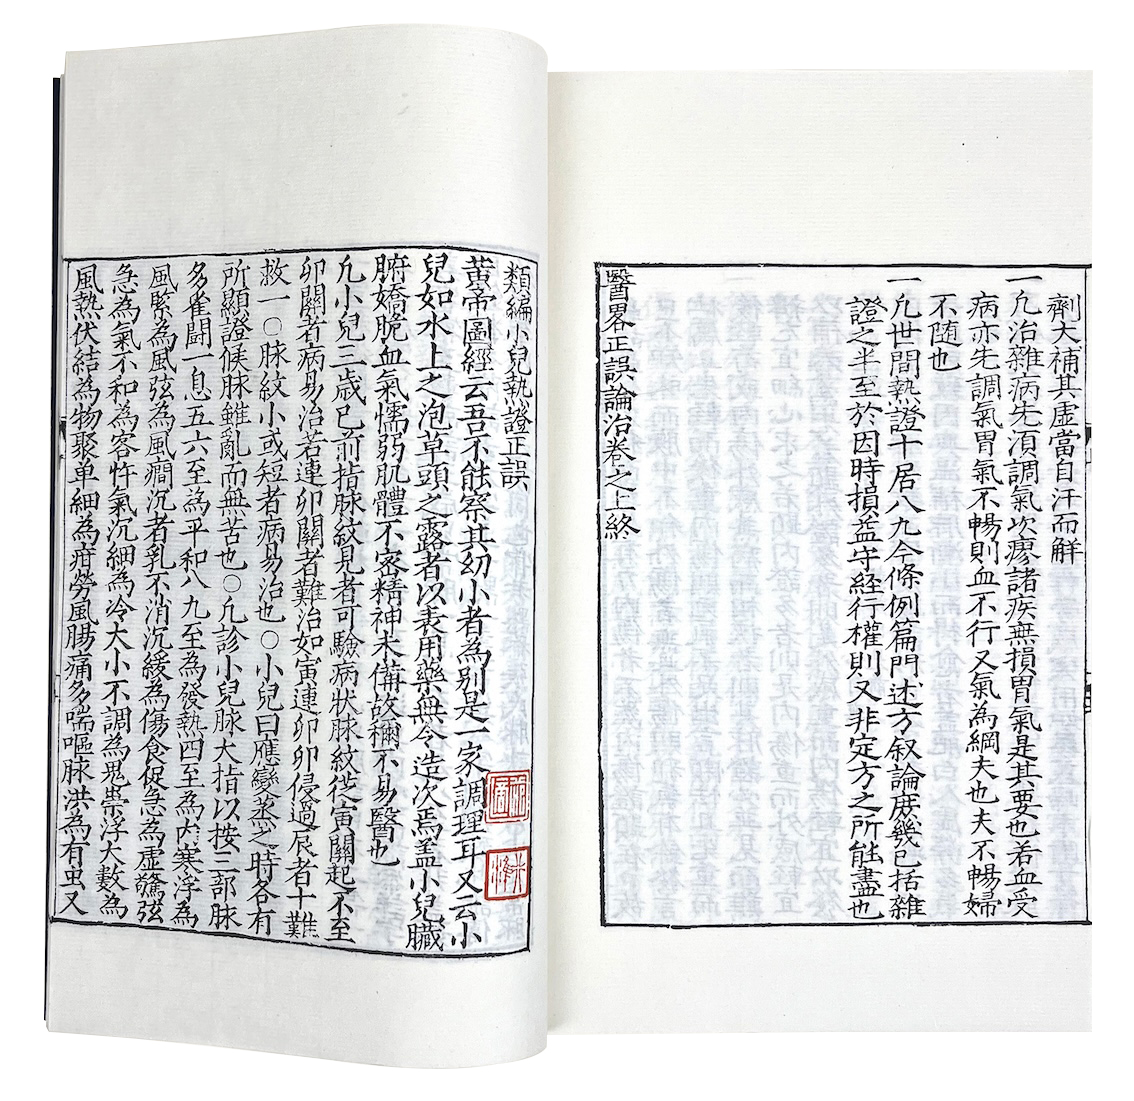 劑大補其虛當自汗而解
一凢治雜病先湏調氣次瘳諸疾無損胃氣是其要也若血受
病亦先調氣胃氣不暢則血不行又氣為綱夫也夫不暢婦
不随也
一凢世間熱證十居八九今條例篇門述方叙論庻幾已括雜
證之半至於因時損益守経行權則又非定方之所能盡也
醫畧正誤論治卷之上終
類編小兒熱證正誤
黄帝圖經云吾不能察其幼小者為别是一家調理耳又云小
兒如水上之泡草頭之露者以表用藥無令造次焉盖小兒臟
腑嬌脆血氣懦弱肌體不宻精神未備故禰不易醫也
凢小兒三歳已前指脉紋見者可驗病状脉紋從寅關起不至
卯關者病易治若連卯關者難治如寅連卯卯侵過辰者十難
救一〇脉紋小或短者病易治也〇小兒曰應變蒸之時各有
所顯證候脉雖亂而無苦也〇凢診小兒脉大指以按三部脉
多雀闘一息五六至為平和八九至為發熱四至為内寒浮為
風緊為風弦為風癎沉者乳不消沉緩為傷食促急為虚驚弦
急為氣不和為客忤氣沉細為冷大小不調為鬼祟浮大數為
風熱伏結為物聚单細為疳勞風腸痛多喘嘔脉洪為有虫又